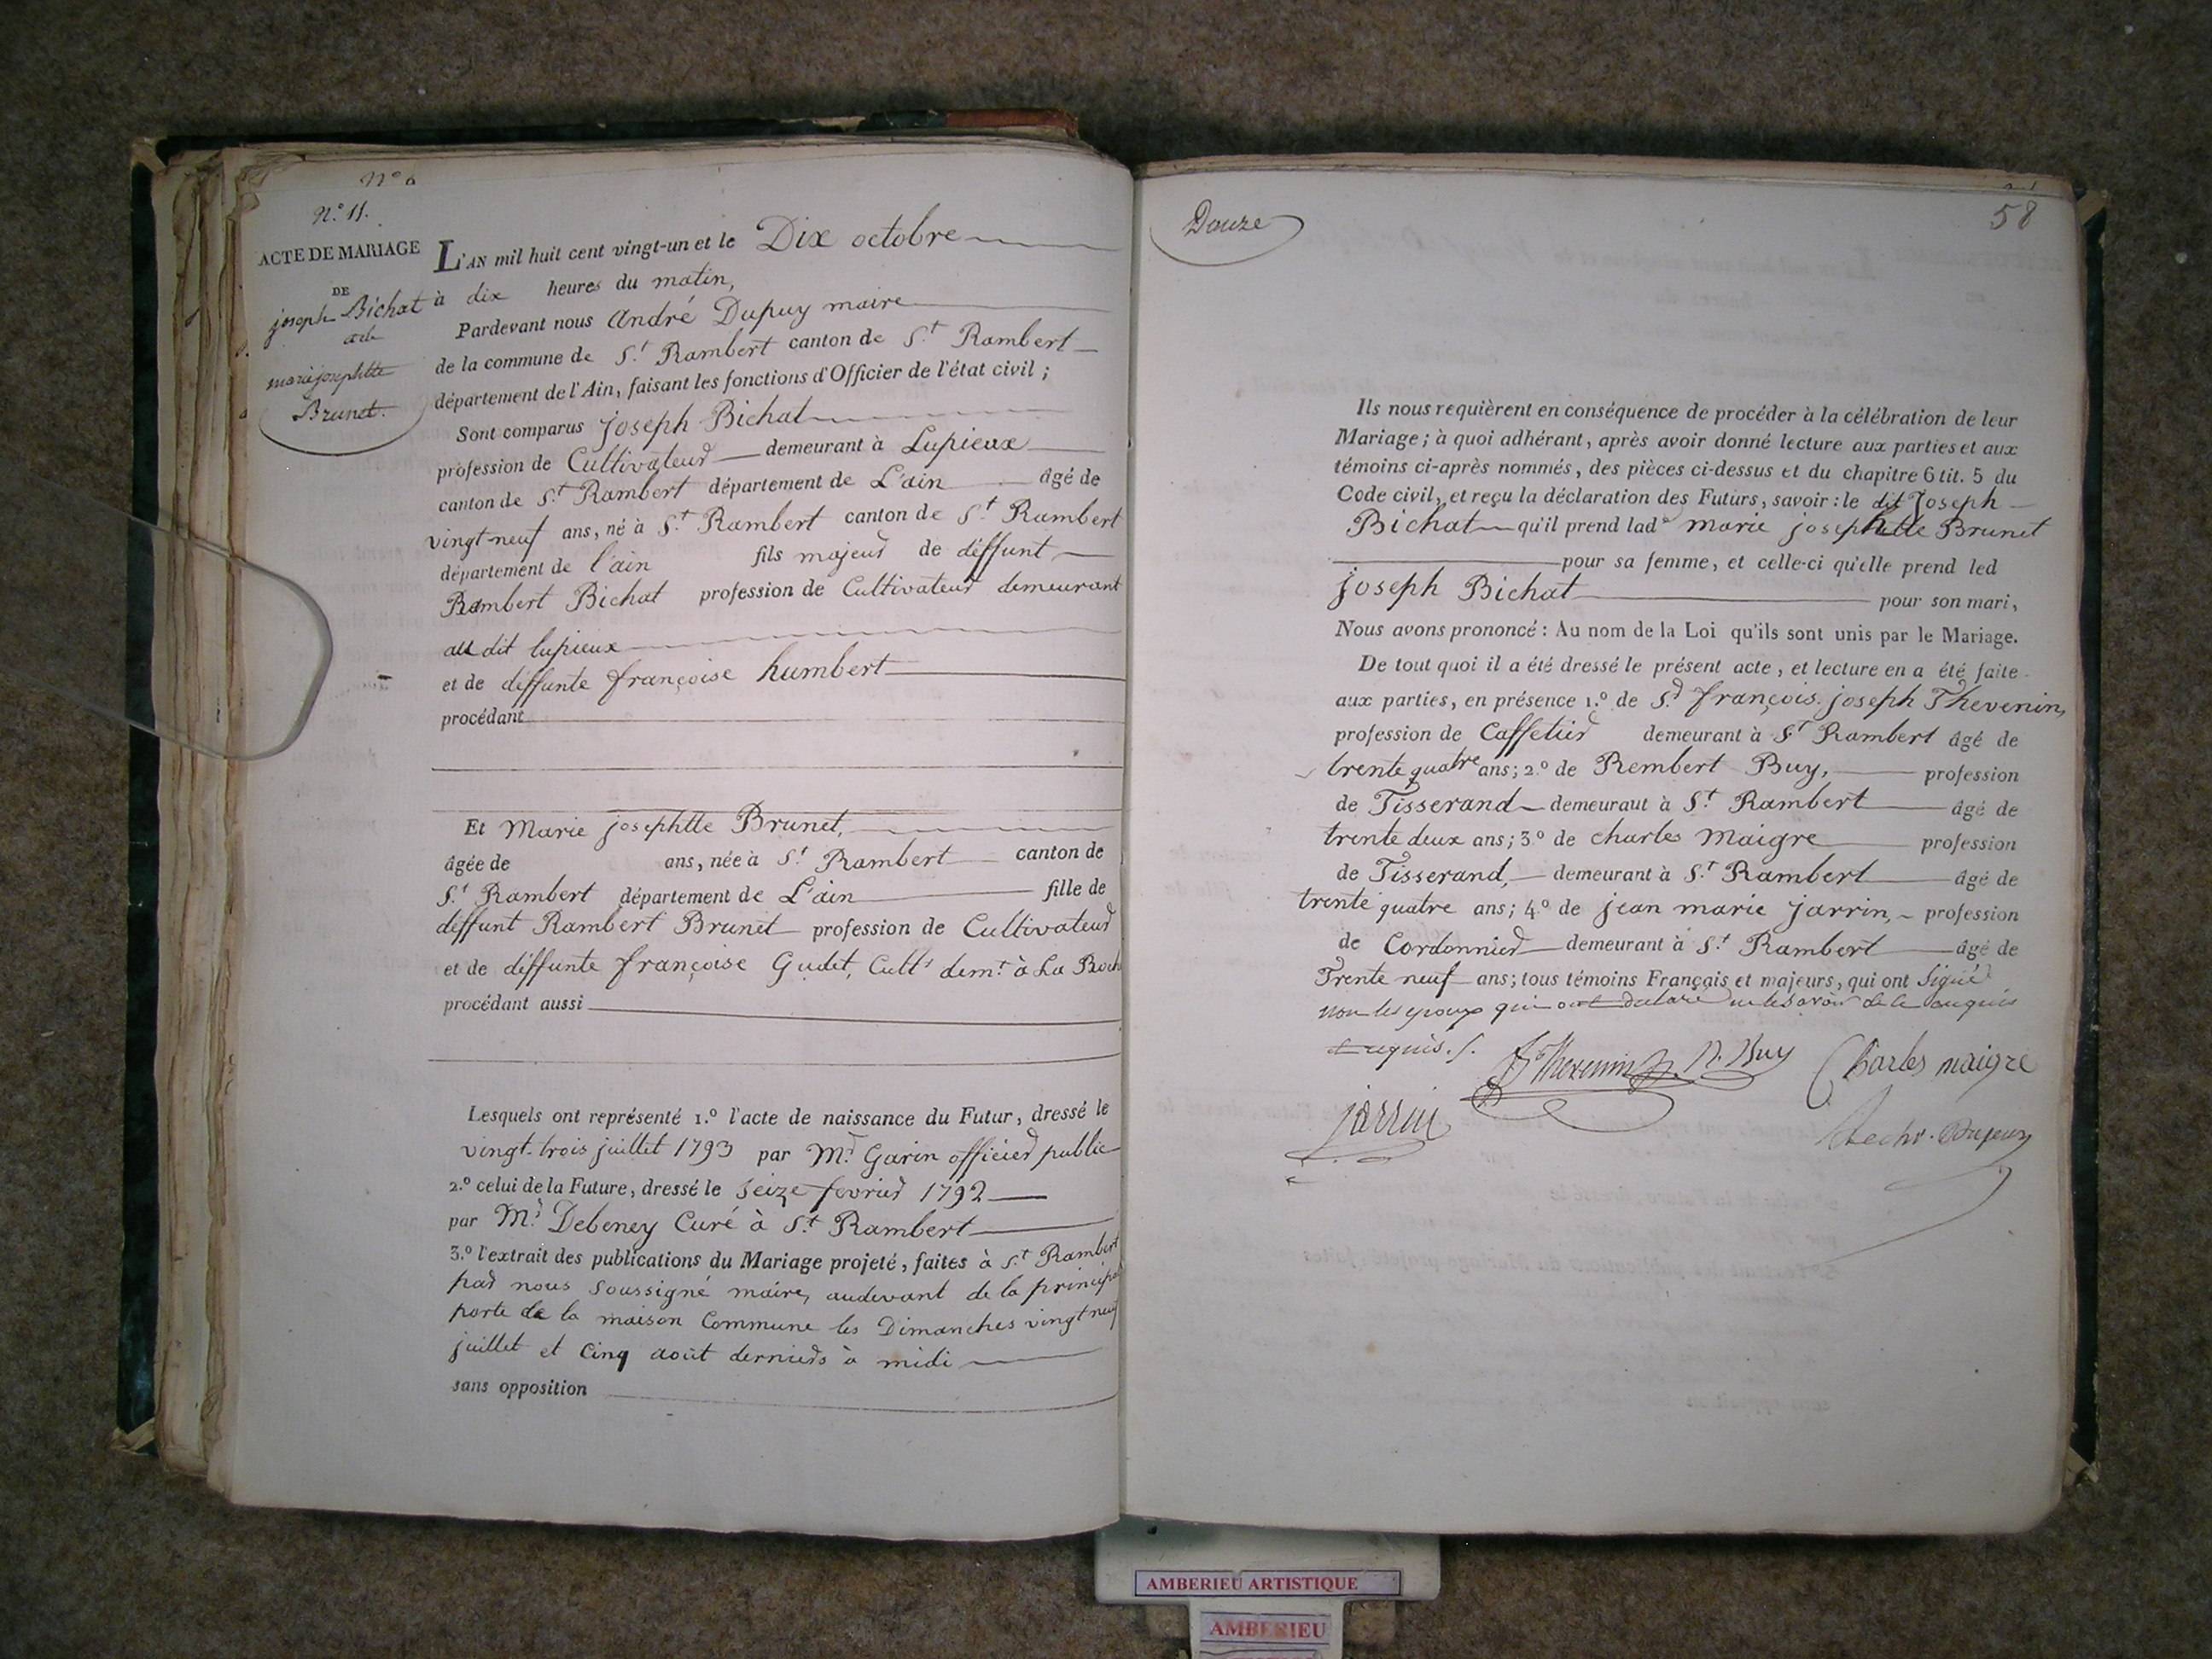 N° 6
N.° 11.
ACTE DE MARIAGE
DE
joseph Bichat
marie josephtte
Brunet.
L'AN mil huit cent vingt-un et le Dix octobre
à dix heures du matin,
Pardevant nous André Dupuy maire
de la commune de S.t Rambert canton de S.t Rambert
département de l'Ain, faisant les fonctions d'Officier de l'état civil ;
Sont comparus joseph Bichat
profession de Cultivateur demeurant à Lupieux
canton de S.t Rambert département de L'ain âgé de
vingt-neuf ans, né à S.t Rambert canton de S.t Rambert
département de l'ain fils majeur de déffunt
Rambert Bichat profession de Cultivateur demeurant
au dit lupieux
et de déffunte françoise humbert
procédant
Et Marie josephtte Brunet,
âgée de ans, née à S.t Rambert canton de
S.t Rambert département de L'ain fille de
déffunt Rambert Brunet profession de Cultivateur
et de déffunte françoise Gudet, Cult.r dem.t à La Roch
procédant aussi
Lesquels ont représenté 1.° l'acte de naissance du Futur, dressé le
vingt-trois juillet 1793 par M.r Garin officier public
2.° celui de la Future, dressé le seize fevrier 1792
par M.r Debeney Curé à S.t Rambert
3.° l'extrait des publications du Mariage projeté, faites à S.t Rambert
par nous soussigné maire, audevant de la principal
porte de la maison Commune les Dimanches vingt neuf
juillet et Cinq août derniers à midi
sans opposition
Douze
58
Ils nous requièrent en conséquence de procéder à la célébration de leur
Mariage ; à quoi adhérant, après avoir donné lecture aux parties et aux
témoins ci-après nommés, des pièces ci-dessus et du chapitre 6 tit. 5 du
Code civil, et reçu la déclaration des Futurs, savoir : le dit Joseph
Bichat qu'il prend lad.e marie josephtte Brunet
pour sa femme, et celle-ci qu'elle prend led
joseph Bichat pour son mari,
Nous avons prononcé : Au nom de la Loi qu'ils sont unis par le Mariage.
De tout quoi il a été dressé le présent acte, et lecture en a été faite
aux parties, en présence 1.° de S.r françois joseph Thevenin,
profession de Caffetier demeurant à S.t Rambert âgé de
trente quatre ans ; 2.° de Rembert Buy, profession
de Tisserand demeuraut à S.t Rambert âgé de
trente deux ans ; 3.° de charles Maigre profession
de Tisserand, demeurant à S.t Rambert âgé de
trente quatre ans ; 4.° de jean marie Jarrin, profession
de Cordonnier demeurant à S.t Rambert âgé de
Trente neuf ans ; tous témoins Français et majeurs, qui ont signé
non les epoux qui ont declaré ne le savoir de ce enquis
et requis.
Thevenin R. Buy Charles maigre
jarrin Dupuy
AMBERIEU ARTISTIQUE
AMBERIEU